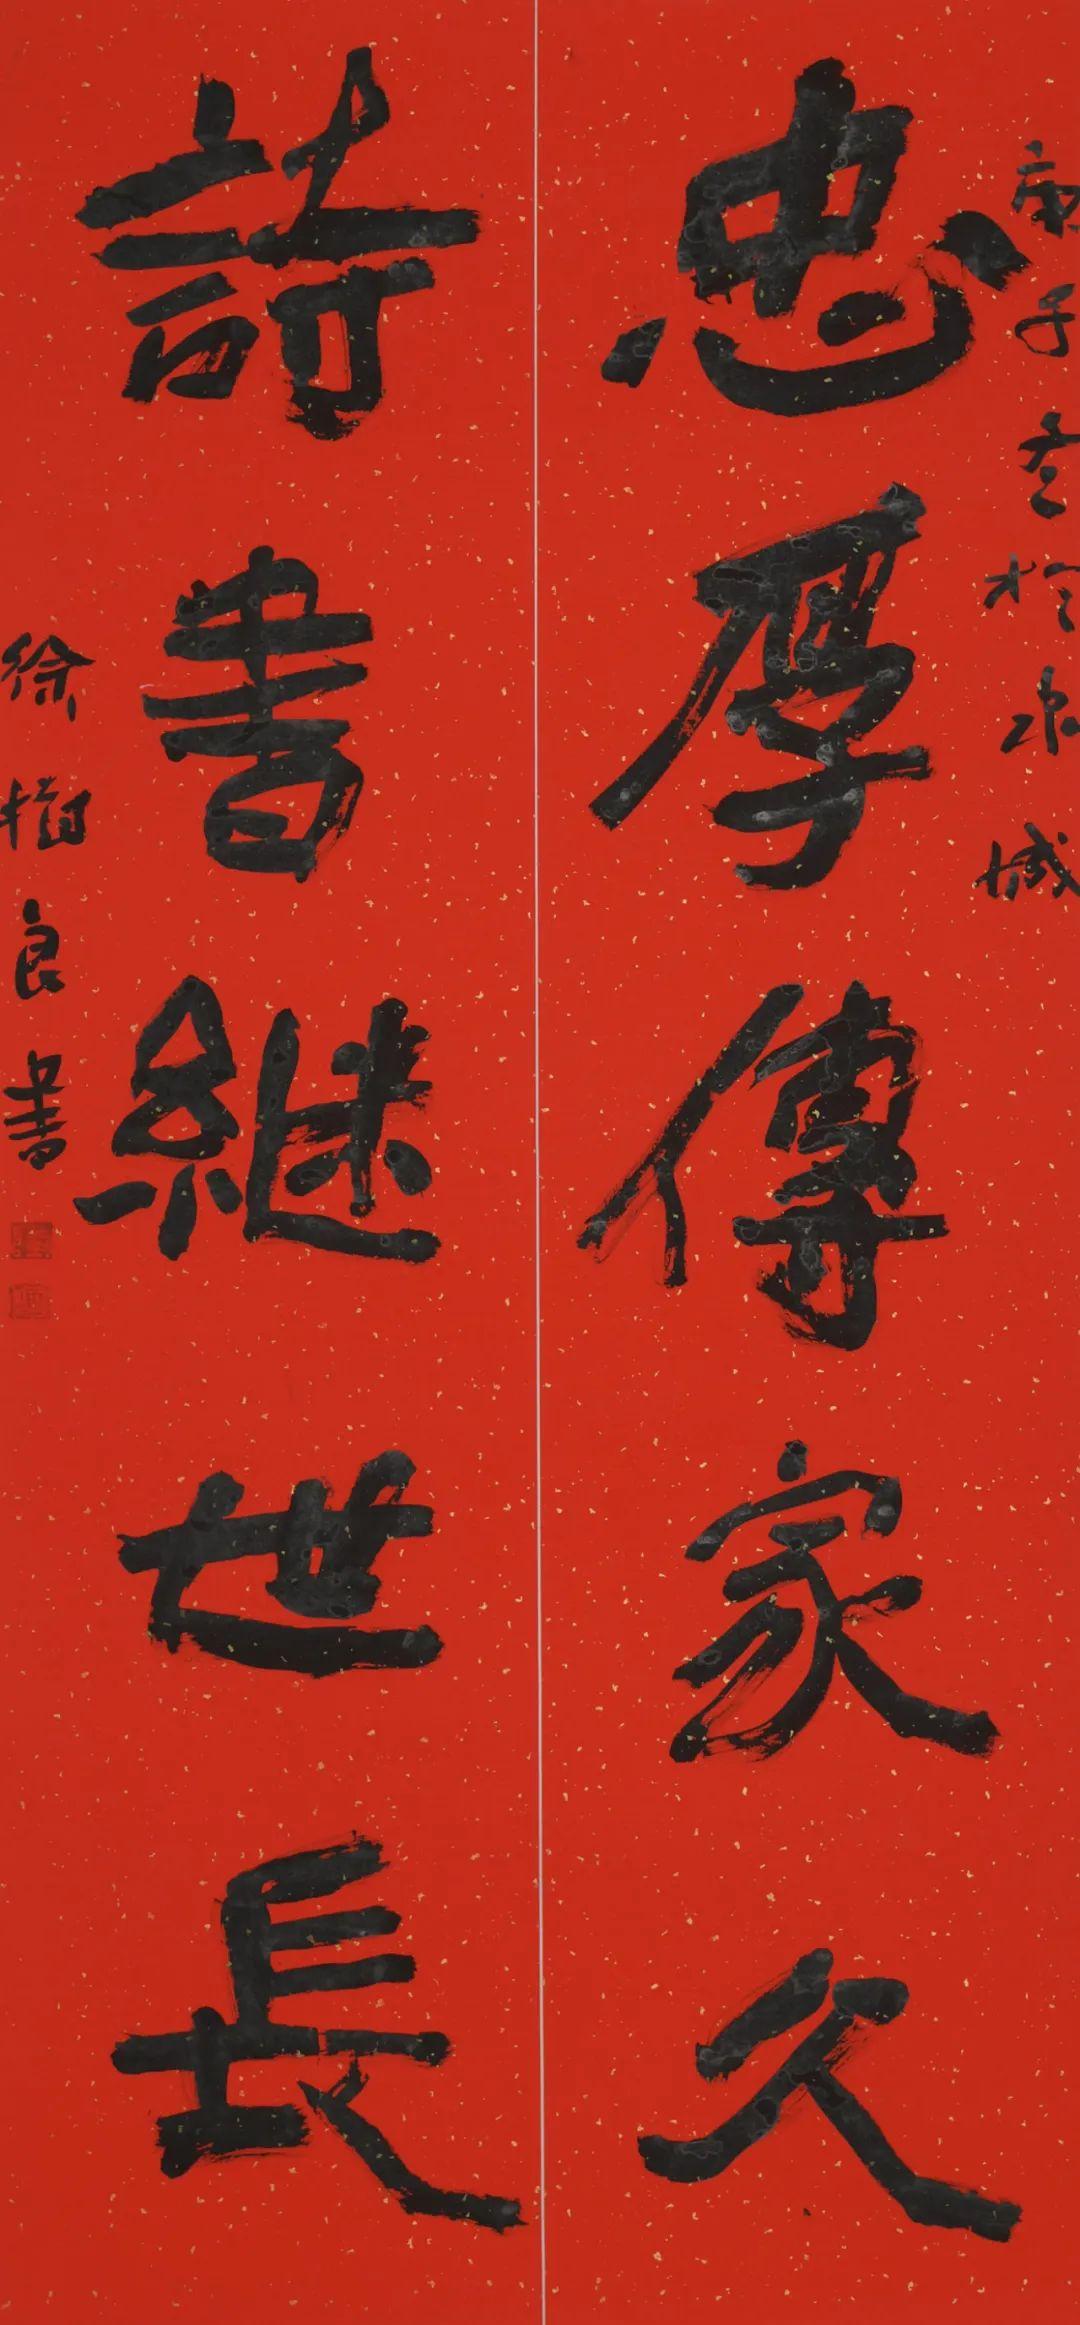 庚子冬於泉城
忠厚傳家久
詩書継世長
徐樹良書